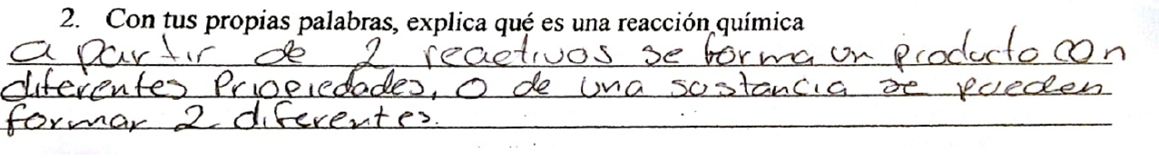 2. Con tus propias palabras, explica qué es una reacción química
a partir de 2 reactivos se forma un producto con
diferentes Propiedades, o de una sustancia se pueden
formar 2 diferentes.